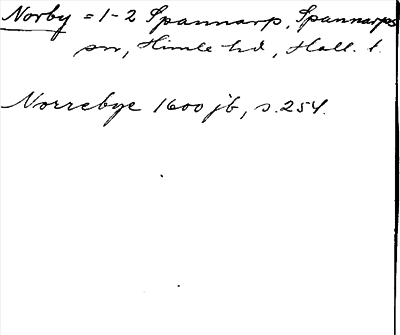 Norby = 1-2 Spannarp, Spannarps
sn, Himle hd, Hall. l.
Norrebye 1600 jb, s. 254.